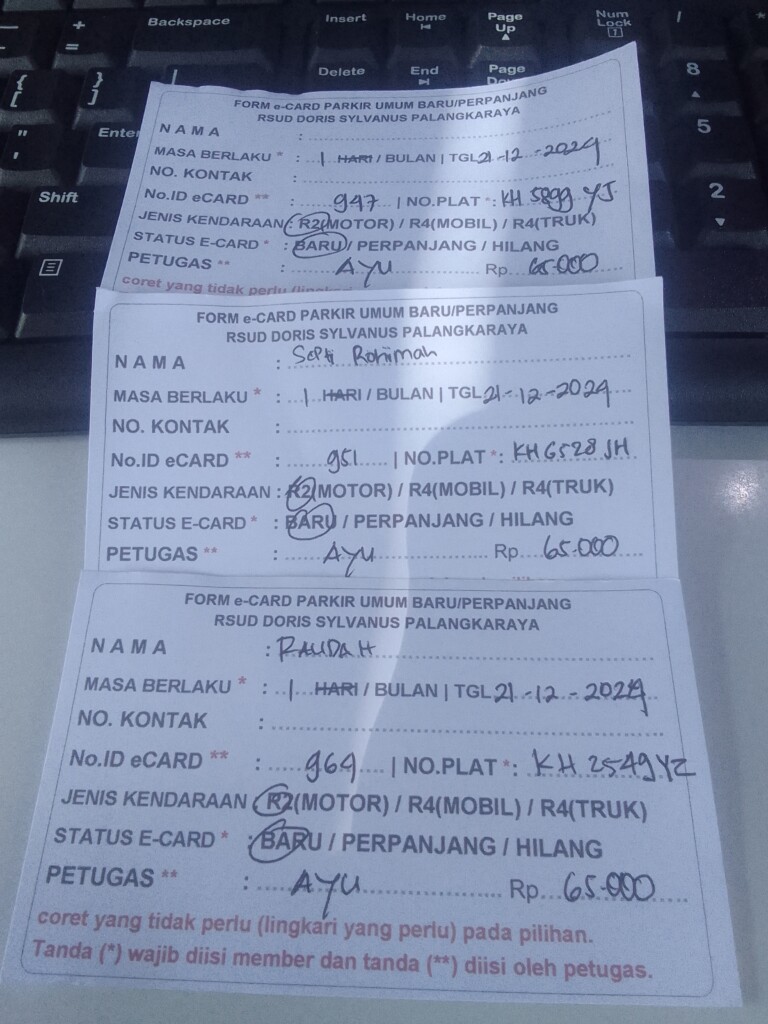 Backspace
Insert
Home
Page Up
Num Lock
/
Delete
End
8
Enter
5
Shift
2
FORM e-CARD PARKIR UMUM BARU/PERPANJANG
RSUD DORIS SYLVANUS PALANGKARAYA
NAMA :
MASA BERLAKU * : 1 HARI / BULAN | TGL 21-12-2024
NO. KONTAK :
No.ID eCARD ** : 947 | NO.PLAT *: KH 5899 YJ
JENIS KENDARAAN : R2(MOTOR) / R4(MOBIL) / R4(TRUK)
STATUS E-CARD * : BARU / PERPANJANG / HILANG
PETUGAS ** : AYU Rp. 65.000
coret yang tidak perlu
FORM e-CARD PARKIR UMUM BARU/PERPANJANG
RSUD DORIS SYLVANUS PALANGKARAYA
NAMA : Septi Rohimah
MASA BERLAKU * : 1 HARI / BULAN | TGL 21-12-2024
NO. KONTAK :
No.ID eCARD ** : 951 | NO.PLAT *: KH 6528 JH
JENIS KENDARAAN : R2(MOTOR) / R4(MOBIL) / R4(TRUK)
STATUS E-CARD * : BARU / PERPANJANG / HILANG
PETUGAS ** : AYU Rp. 65.000
FORM e-CARD PARKIR UMUM BARU/PERPANJANG
RSUD DORIS SYLVANUS PALANGKARAYA
NAMA : RAUDAH
MASA BERLAKU * : 1 HARI / BULAN | TGL 21-12-2024
NO. KONTAK :
No.ID eCARD ** : 969 | NO.PLAT *: KH 2549 YZ
JENIS KENDARAAN : R2(MOTOR) / R4(MOBIL) / R4(TRUK)
STATUS E-CARD * : BARU / PERPANJANG / HILANG
PETUGAS ** : AYU Rp. 65.000
coret yang tidak perlu (lingkari yang perlu) pada pilihan.
Tanda (*) wajib diisi member dan tanda (**) diisi oleh petugas.